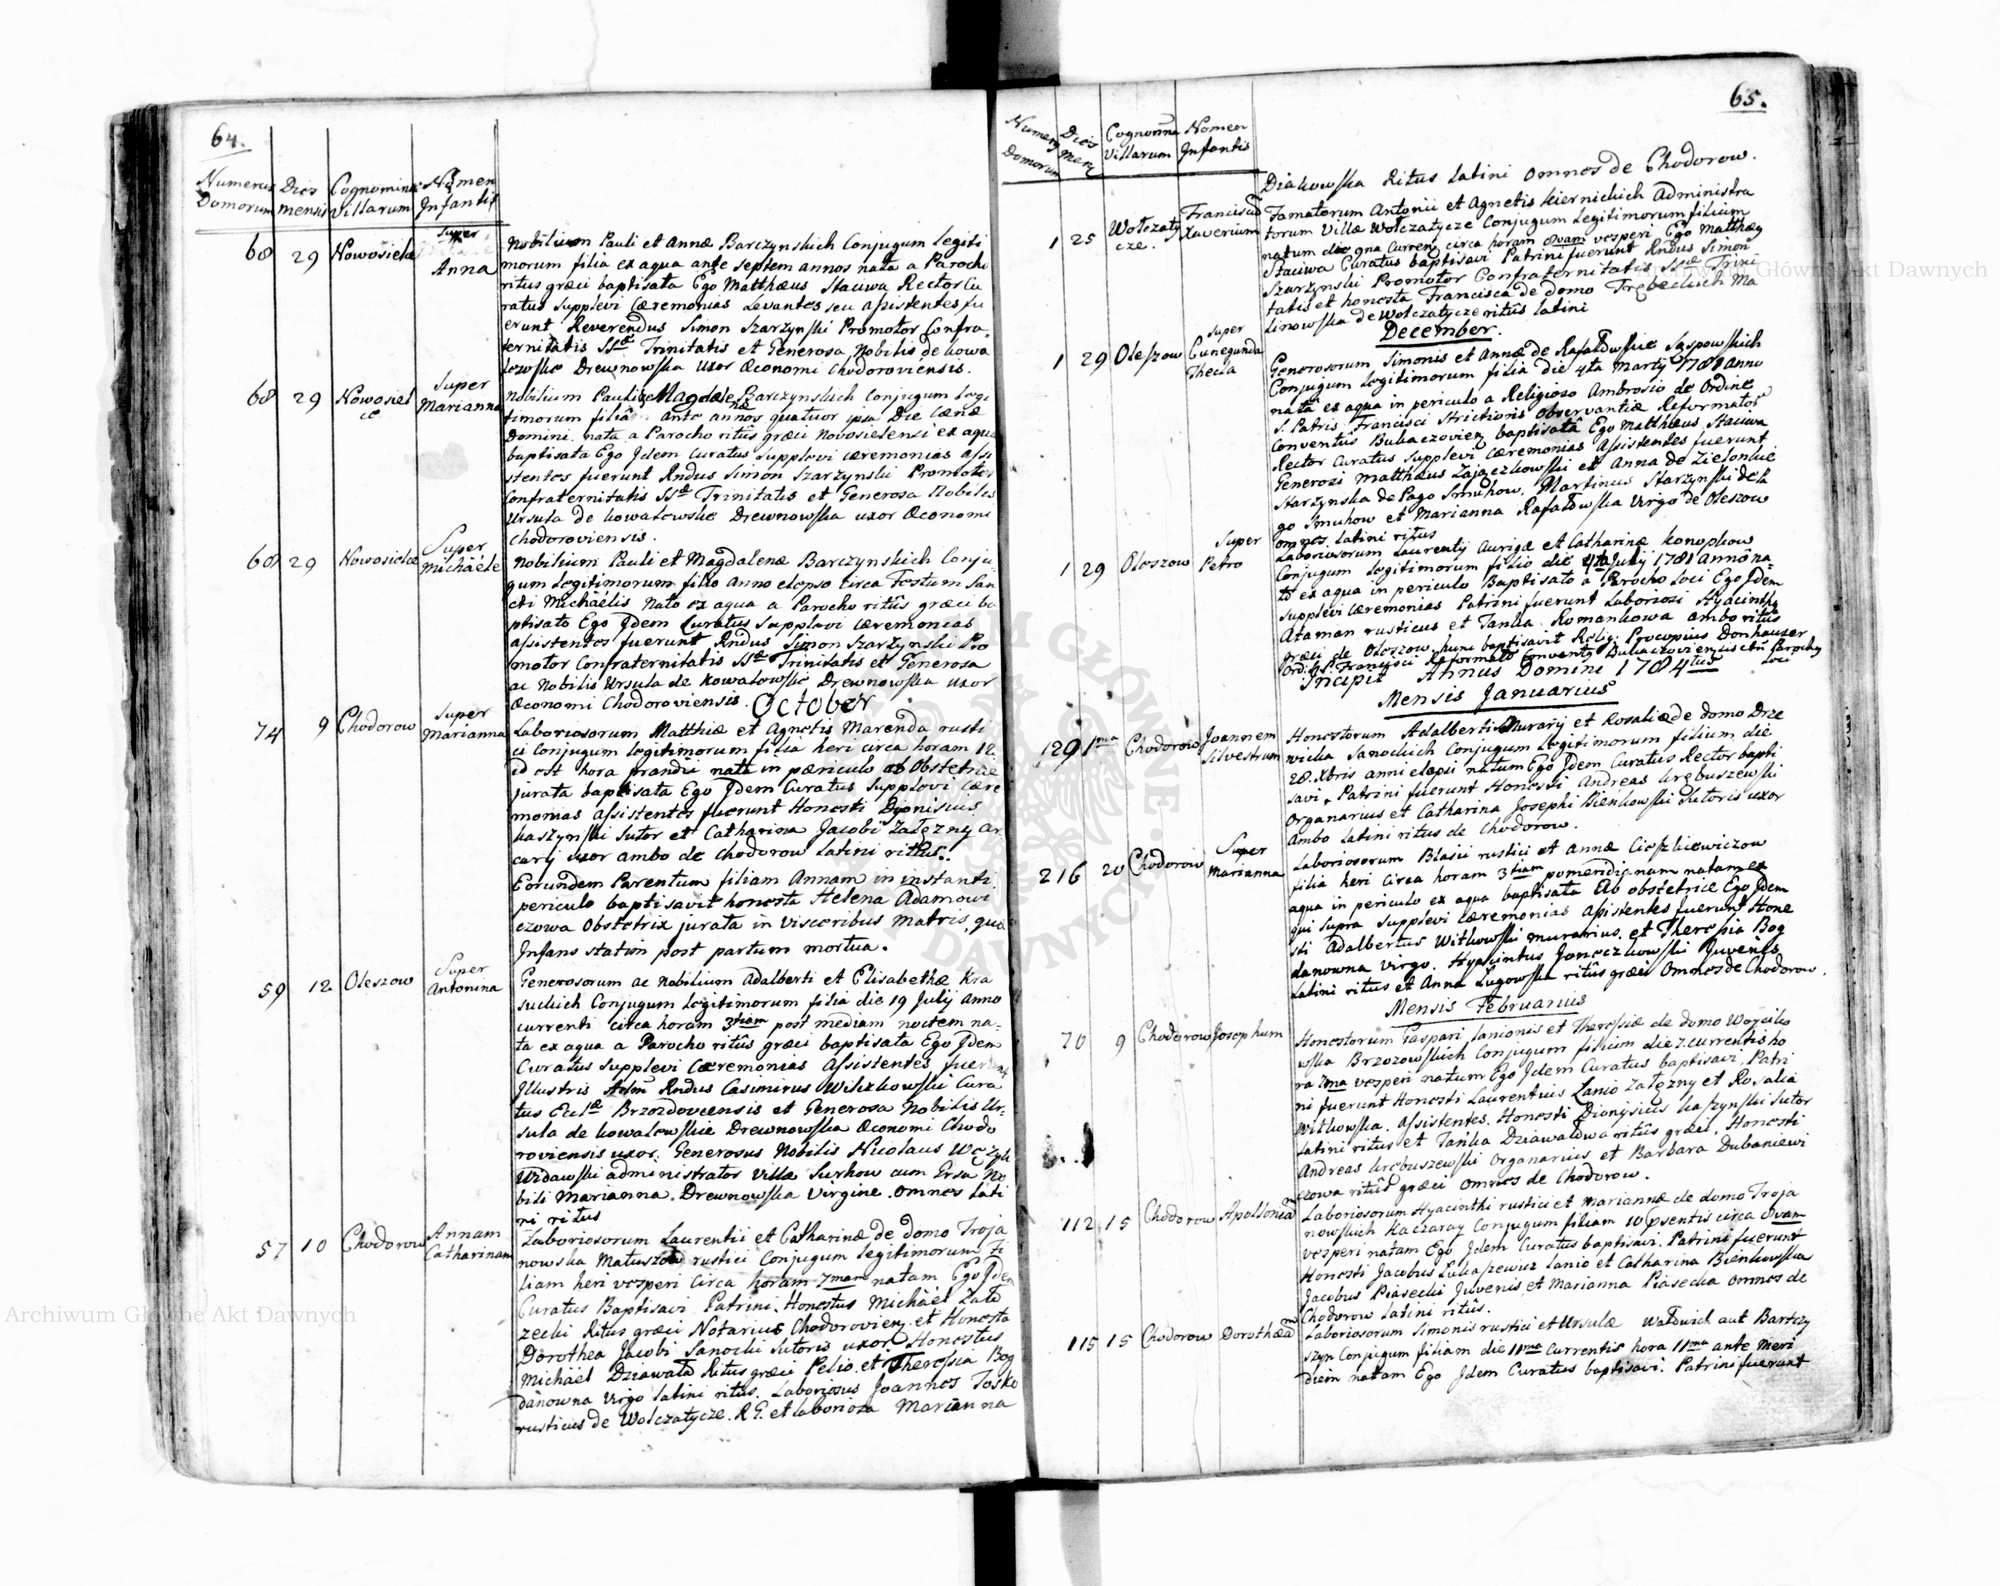 64.
Numerus Domorum
Dies mensis
Cognomina Villarum
Nomen Infantis
68 29 Nowosielce
Super Anna
Nobilium Pauli et Annæ Barczynskich Conjugum legiti
morum filia ex aqua ante septem annos nata a Parocho
ritus græci baptisata Ego Matthæus Staciwa Rector Cu
ratus Supplevi Cæremonias Levantes seu assistentes fu
erunt Reverendus Simon Szarzynski Promotor Confra
ternitatis SSæ Trinitatis et Generosa Nobilis de Kowa
lewskie Drewnowska uxor Œconomi Chodoroviensis.
68 29 Nowosiel ce
Super Marianna
Nobilium Pauli et Magdalenæ Barczynskich Conjugum legi
timorum filia ante annos quatuor ipsa Die Cænæ
Domini nata a Parocho ritûs græci Novosielensi ex aqua
baptisata Ego Idem Curatus Supplevi cæremonias assi
stentes fuerunt Rndus Simon Szarzynski Promotor
Confraternitatis SSæ Trinitatis et Generosa Nobilis
Ursula de Kowalewskie Drewnowska uxor Œconomi
Chodoroviensis.
68 29 Nowosielce
Super Michaële
Nobilium Pauli et Magdalenæ Barczynskich Conju
gum legitimorum filio Anno elapso circa Festum San
cti Michaëlis nato ex aqua a Parocho ritûs græci ba
ptisato Ego Idem Curatus Supplevi cæremonias
assistentes fuerunt Rndus Simon Szarzynski Pro
motor Confraternitatis SSæ Trinitatis et Generosa
ac Nobilis Ursula de Kowalewskie Drewnowska uxor
Œconomi Chodoroviensis.
October
74 9 Chodorow
Super Marianna
Laboriosorum Matthiæ et Agnetis Marenda rusti
ci Conjugum legitimorum filia heri circa horam 12
id est hora prandii nata in periculo ab Obstetrice
jurata baptisata Ego Idem Curatus Supplevi Cære
monias assistentes fuerunt Honesti Dyonisius
Kaszynski Sutor et Catharina Jacobi Załęzny Ar
cary uxor ambo de Chodorow Latini rittus.
Eorundem Parentum filiam Annam in instanti
periculo baptisavit honesta Helena Adamowi
czowa Obstetrix jurata in visceribus Matris, qua
Infans statim post partum mortua.
59 12 Oleszow
Super Antonina
Generosorum ac Nobilium Adalberti et Elisabethæ Kra
suckich Conjugum legitimorum filia die 19 Julij anno
currenti circa horam 3tiam post mediam noctem na
ta ex aqua a Parocho ritûs græci baptisata Ego Idem
Curatus Supplevi Cæremonias Assistentes fuerunt
Illustris Adm Rndus Casimirus Wilczkowski Cura
tus Ecclæ Brzozdovcensis et Generosa Nobilis Ur
sula de Kowalewskie Drewnowska Œconomi Chodo
roviensis uxor. Generosus Nobilis Nicolaus
administrator Villæ Surhow cum Gnsa No
bili Marianna Drewnowska Virgine. Omnes Lati
ni ritus
57 10 Chodorow
Annam Catharinam
Laboriosorum Laurentii et Catharinæ de domo Troja
nowska Matuszow rustici Conjugum legitimorum Fi
liam heri vesperi circa horam 7mam natam Ego Idem
Curatus Baptisavi Patrini. Honestus Michäel Zało
zecki Ritus græci Notarius Chodorovien et Honesta
Dorothea Jacobi Sanocki Sutoris uxor. Honestus
Michäel Dziawała Ritus græci Pelio et Theressia Bog
danowna Virgo latini ritus. Laboriosus Joannes Tosko
rusticus de Wolczatycze. R G. et laboriosa Marianna
65.
Numerus Domorum
Dies Mens
Cognomina Villarum
Nomen Infantis
Diakowska Ritus latini omnes de Chodorow.
1 25 Wolczaty cze.
Franciscum Xaverium
Famatorum Antonii et Agnetis Kiernickich Administra
torum Villæ Wolczatycze Conjugum legitimorum filium
natum die 9na Curren circa horam 8vam vesperi Ego Matthæg
Staciwa Curatus baptisavi Patrini fuerunt Rndus Simon
Szarzynski Promotor Confraternitatis SSæ Trini
tatis et honesta Francisca de domo Trębeckich Ma
linowska de Wolczatycze ritûs latini
December.
1 29 Oleszow
Super Cunegunda Thecla
Generosorum Simonis et Annæ de Rafałowskie Saspowskich
Conjugum legitimorum filia die 4ta Marty 1781 Anno
nata ex aqua in periculo a Religioso Ambrosio de Ordine
S. Patris Francisci Strictioris Observantiæ Reformator
Conventûs Bukaczovien baptisatâ Ego Matthæus Staciwa
Rector Curatus Supplevi Cæremonias Assistentes fuerunt
Generosi Matthæus Zajączkowski et Anna de Zielonkie
Starzynska de Pago Smuhow. Martinus Starzynski de Pa
go Smuhow et Marianna Rafałowska Virgo de Oleszow
omnes latini ritus
1 29 Oleszow
Super Petro
Laboriosorum Laurentij Aurigæ et Catharinæ Konopkow
Conjugum legitimorum filio die 4ta Julij 1781 Anno na
to ex aqua in periculo Baptisato a Parocho loci Ego Idem
Supplevi Cæremonias Patrini fuerunt Laboriosi Hyacinthg
Ataman rusticus et Tańka Romankowa ambo ritus
græci de Oleszow, hunc baptisavit Relig. Procopius Donhauser
Ord: S. P. Francisci Reformato Conventg Bukaczoviensis Parochg loci
Incipit Annus Domini 1784tus
Mensis Januarius
129 1ma Chodorow
Joannem Silvestrum
Honestorum Adalberti Murarij et Rosaliæ de domo Drze
wicka Sanockich Conjugum Legitimorum filium die
28 Xbris anni elapsi natum Ego Idem Curatus Rector bapti
savi. Patrini fuerunt Honesti Andreas Grębuszewski
Organarius et Catharina Josephi Bienkowski Sutoris uxor
Ambo latini ritus de Chodorow.
216 20 Chodorow
Super Marianna
Laboriosorum Blasii rustici et Annæ Cieszkiewiczow
filia heri circa horam 3tiam pomeridianam natam ex
aqua in periculo ex aqua baptisata ab obstetrice Ego Idem
qui supra Supplevi cæremonias Assistentes fuerunt Hone
sti Adalbertus Witkowski murarius et Theressia Bog
danowna virgo. Hyacintus Jonoczkowski Juvenis
latini ritus et Anna Ługowska ritûs græci omnes de Chodorow.
Mensis Februarius
76 9 Chodorow
Josephum
Honestorum Caspari Lanionis et Theressiæ de domo Woyciko
wska Brzozowskich Conjugum filium die 7 currentis ho
ra 2ma vesperi natum Ego Idem Curatus baptisavi Patri
ni fuerunt Honesti Laurentius Lanio Załęzny et Rosalia
Witkowska. Assistentes. Honesti Dionysius Kaszynski Sutor
latini ritus et Tańka Dziawałowa ritûs græci. Honesti
Andreas Grębuszewski Organarius et Barbara Dubaniewi
czowa ritûs græci omnes de Chodorow.
112 15 Chodorow
Apolloniam
Laboriosorum Hyacinthi rustici et Mariannæ de domo Troja
nowskich Kaczaray Conjugum filiam 10 psentis circa 8vam
vesperi natam Ego Idem Curatus baptisavi. Patrini fuerunt
Honesti Jacobus Łukaszewicz Lanio et Catharina Bienkowska
Jacobus Piasecki Juvenis et Marianna Piasecka omnes de
Chodorow latini ritûs.
115 15 Chodorow
Dorothæam
Laboriosorum Simonis rustici et Ursulæ Wałdwich aut Bartczy
szyn Conjugum filiam die 11ma currentis hora 11ma ante meri
diem natam Ego Idem Curatus baptisavi. Patrini fuerunt
Archiwum Główne Akt Dawnych
Archiwum Główne Akt Dawnych
ARCHIWUM GŁÓWNE AKT DAWNYCH